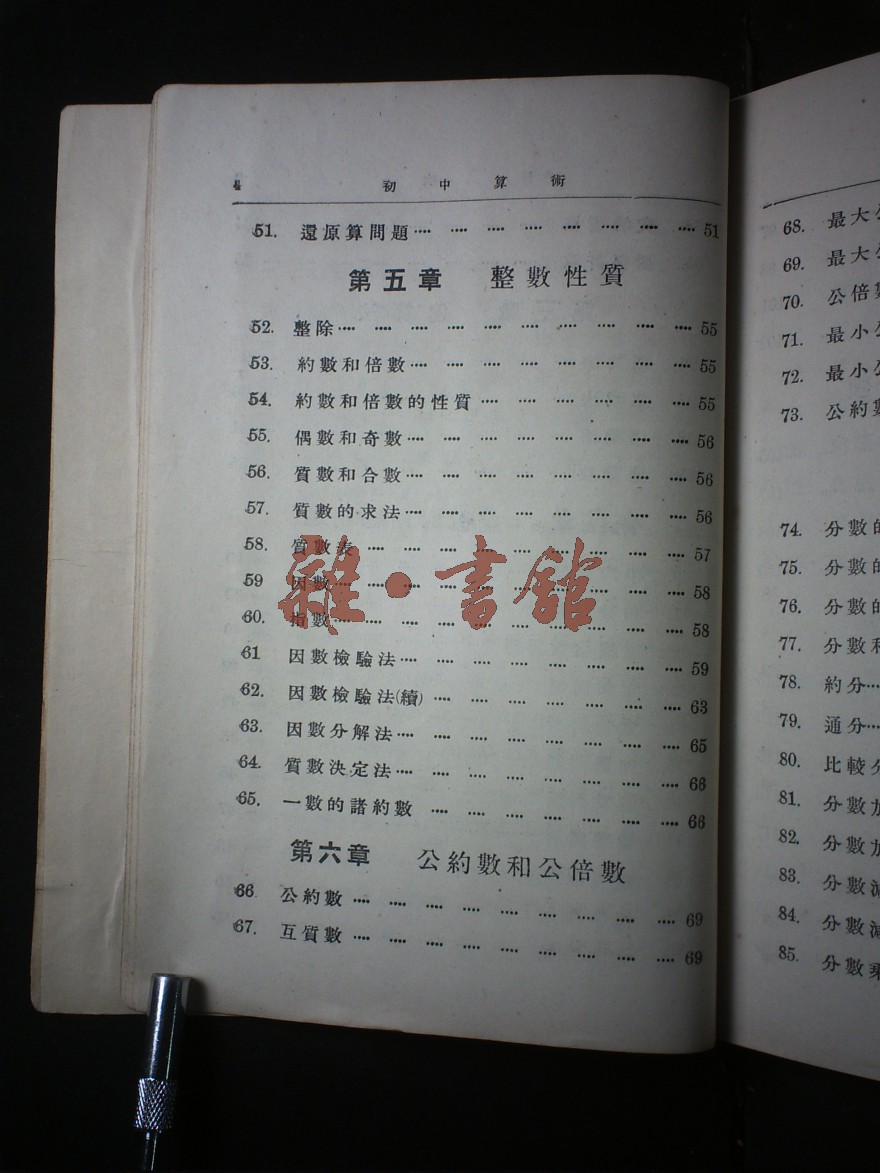 4 初中算術
51. 還原算問題 ···· ···· ···· ···· ···· ···· ···· ···· 51
第五章 整數性質
52. 整除 ···· ···· ···· ···· ···· ···· ···· ···· ···· ···· 55
53. 約數和倍數 ···· ···· ···· ···· ···· ···· ···· ···· 55
54. 約數和倍數的性質 ···· ···· ···· ···· ···· ···· 55
55. 偶數和奇數 ···· ···· ···· ···· ···· ···· ···· ···· 56
56. 質數和合數 ···· ···· ···· ···· ···· ···· ···· ···· 56
57. 質數的求法 ···· ···· ···· ···· ···· ···· ···· ···· 56
58. 質數表 ···· ···· ···· ···· ···· ···· ···· ···· ···· 57
59 因數 ···· ···· ···· ···· ···· ···· ···· ···· ···· ···· 58
60. 指數 ···· ···· ···· ···· ···· ···· ···· ···· ···· ···· 58
61 因數檢驗法 ···· ···· ···· ···· ···· ···· ···· ···· 59
62. 因數檢驗法(續) ···· ···· ···· ···· ···· ···· ···· 63
63. 因數分解法 ···· ···· ···· ···· ···· ···· ···· ···· 65
64. 質數決定法 ···· ···· ···· ···· ···· ···· ···· ···· 66
65. 一數的諸約數 ···· ···· ···· ···· ···· ···· ···· 66
第六章 公約數和公倍數
66 公約數 ···· ···· ···· ···· ···· ···· ···· ···· ···· 69
67. 互質數 ···· ···· ···· ···· ···· ···· ···· ···· ···· 69
雜·書館
68. 最大公
69. 最大公
70. 公倍數
71. 最小公
72. 最小公
73. 公約數
74. 分數的
75. 分數的
76. 分數的
77. 分數和
78. 約分 ···
79. 通分 ···
80. 比較分
81. 分數加
82. 分數加
83. 分數減
84. 分數減
85. 分數乘